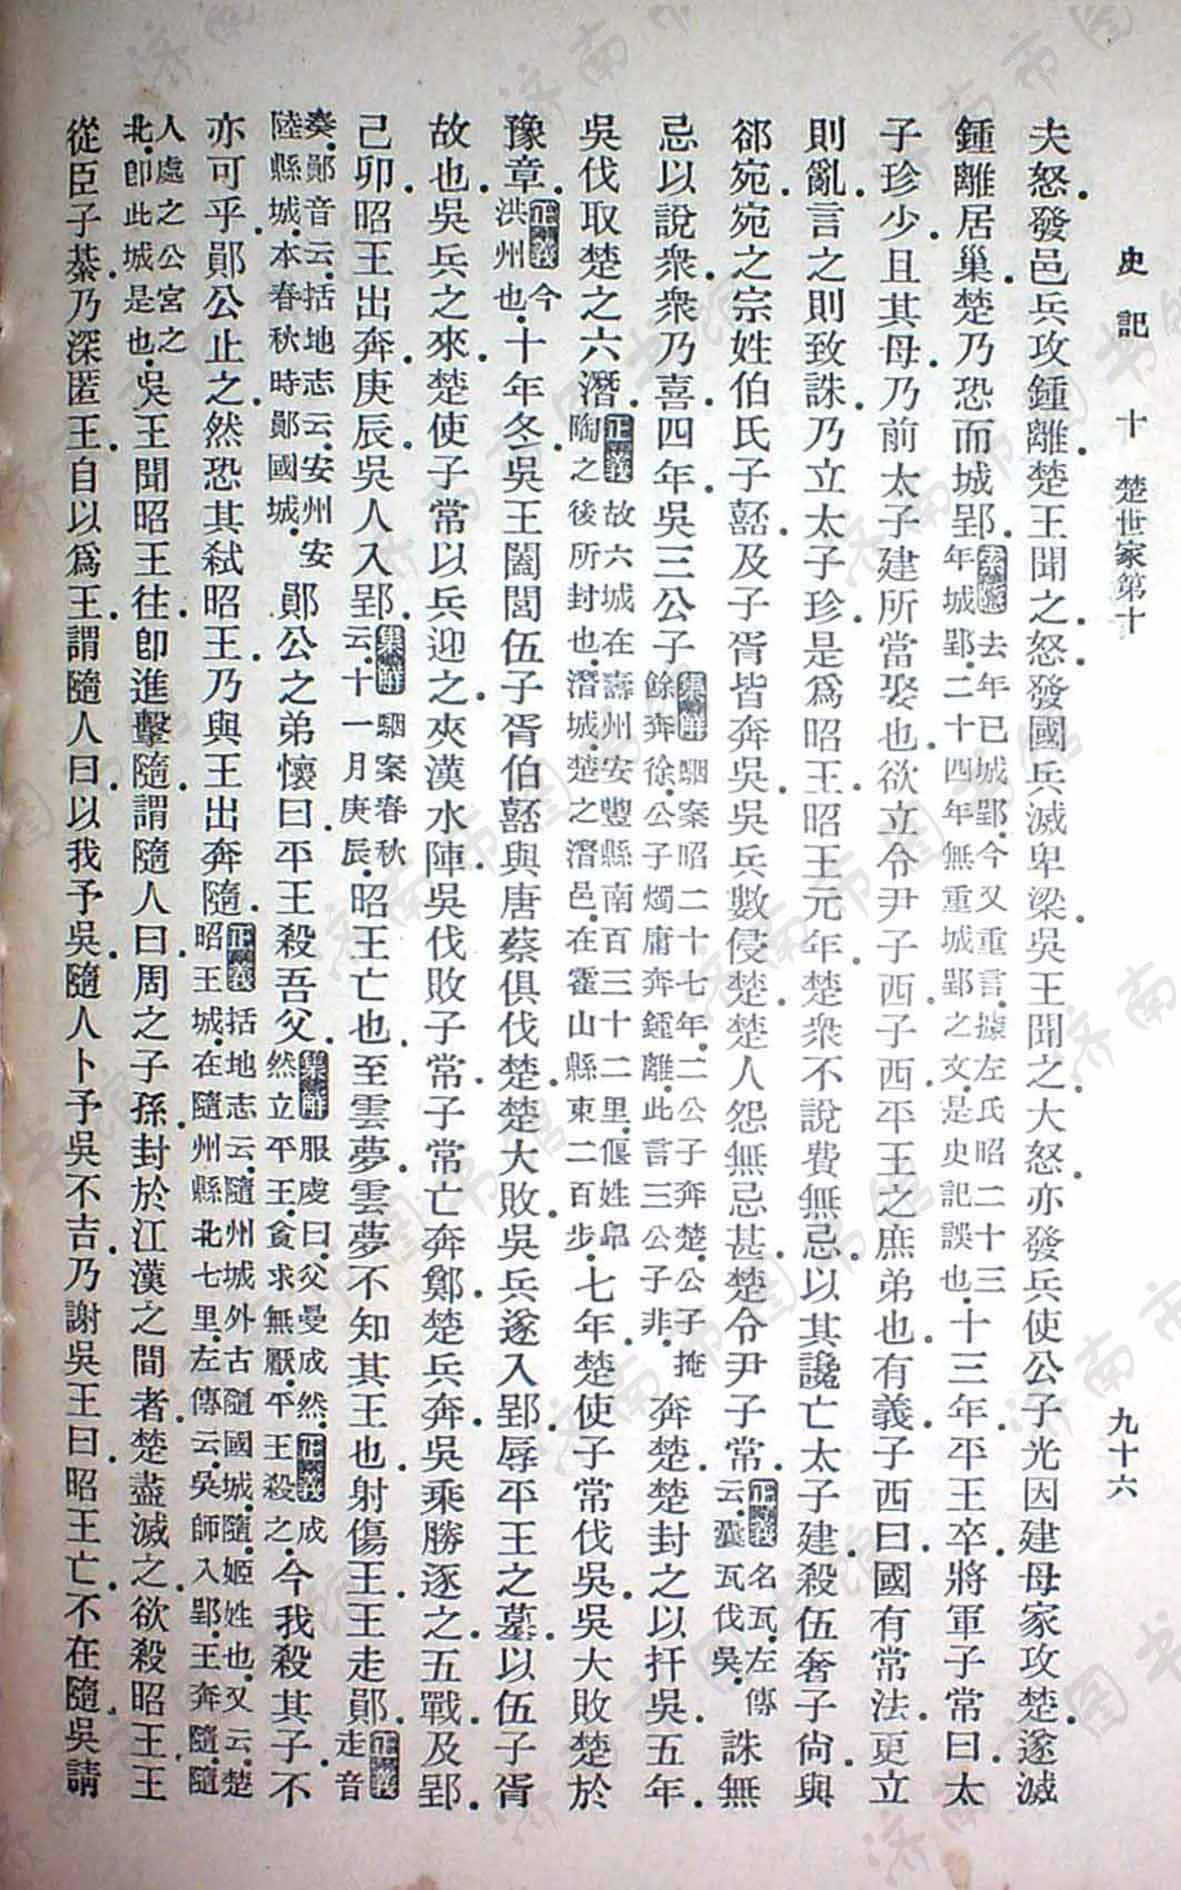 史記 十 楚世家第十 九十六
夫怒.發邑兵攻鍾離.楚王聞之.怒.發國兵滅卑梁.吳王聞之.大怒.亦發兵使公子光因建母家攻楚.遂滅
鍾離居巢.楚乃恐而城郢.索隱去年已城郢.今又重言.據左氏昭二十三年城郢.二十四年無重城郢之文.是史記誤也.十三年.平王卒.將軍子常曰.太
子珍少.且其母.乃前太子建所當娶也.欲立令尹子西.子西平王之庶弟也.有義.子西曰.國有常法.更立
則亂.言之則致誅.乃立太子珍.是爲昭王.昭王元年.楚衆不說費無忌.以其讒亡太子建.殺伍奢子尙與
郤宛.宛之宗姓伯氏子嚭及子胥皆奔吳.吳兵數侵楚.楚人怨無忌甚.楚令尹子常.正義名瓦.左傳云.囊瓦伐吳.誅無
忌以說衆.衆乃喜.四年.吳三公子集解駰案昭二十七年.二公子奔楚.公子掩餘奔徐.公子燭庸奔鍾離.此言三公子非.奔楚.楚封之以扞吳.五年.
吳伐取楚之六潛.正義故六城在壽州安豐縣南百三十二里.偃姓皐陶之後所封也.潛城.楚之潛邑.在霍山縣東二百步.七年.楚使子常伐吳.吳大敗楚於
豫章.正義今洪州也.十年冬.吳王闔閭伍子胥伯嚭與唐蔡俱伐楚.楚大敗.吳兵遂入郢.辱平王之墓.以伍子胥
故也.吳兵之來.楚使子常以兵迎之.夾漢水陣.吳伐敗子常.子常亡奔鄭.楚兵奔.吳乘勝逐之.五戰及郢.
己卯.昭王出奔.庚辰.吳人入郢.集解駰案春秋云.十一月庚辰.昭王亡也.至雲夢.雲夢不知其王也.射傷王.王走鄖.正義走音
奏.鄖音云.括地志云.安州安陸縣城.本春秋時鄖國城.鄖公之弟懷曰.平王殺吾父.集解服虔曰.父曼成然.正義成然立平王.貪求無厭.平王殺之.今我殺其子.不
亦可乎.鄖公止之.然恐其弒昭王.乃與王出奔隨.正義括地志云.隨州城外古隨國城.隨.姬姓也.又云.楚昭王城.在隨州縣北七里.左傳云.吳師入郢.王奔隨.隨
人處之公宮之北.卽此城是也.吳王聞昭王往.卽進擊隨.謂隨人曰.周之子孫.封於江漢之間者.楚盡滅之.欲殺昭王.王
從臣子綦.乃深匿王.自以爲王.謂隨人曰.以我予吳.隨人卜予吳不吉.乃謝吳王曰.昭王亡.不在隨.吳請
济南市图书馆